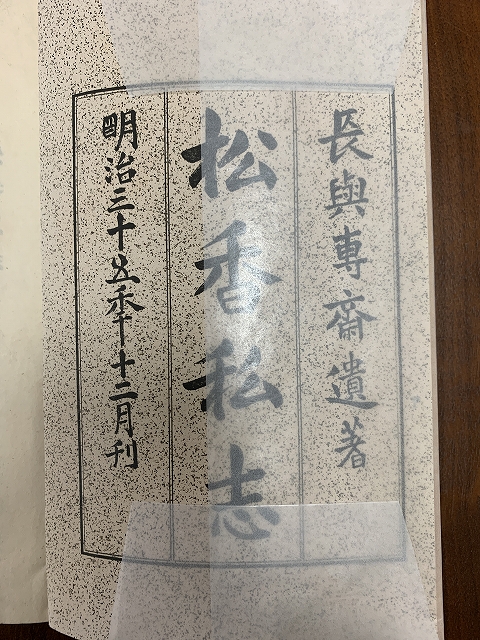 長與專齋遺著
松香私志
明治三十五年十二月刊